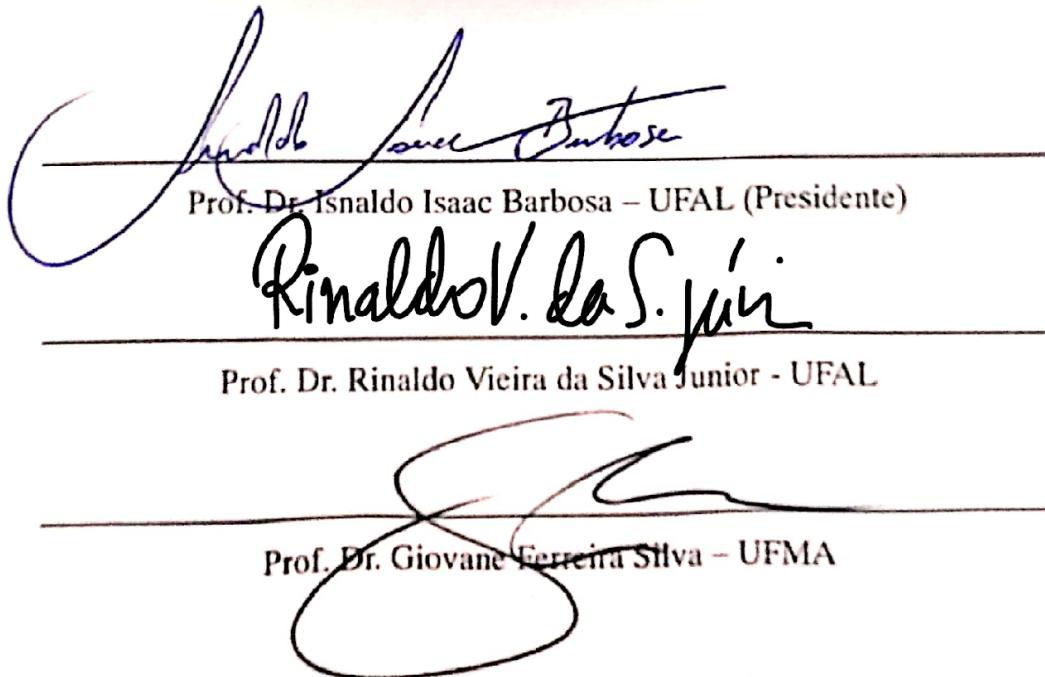 Isnaldo Isaac Barbosa
Prof. Dr. Isnaldo Isaac Barbosa – UFAL (Presidente)
Rinaldo V. da S. Júni
Prof. Dr. Rinaldo Vieira da Silva Junior - UFAL
Prof. Dr. Giovane Ferreira Silva – UFMA